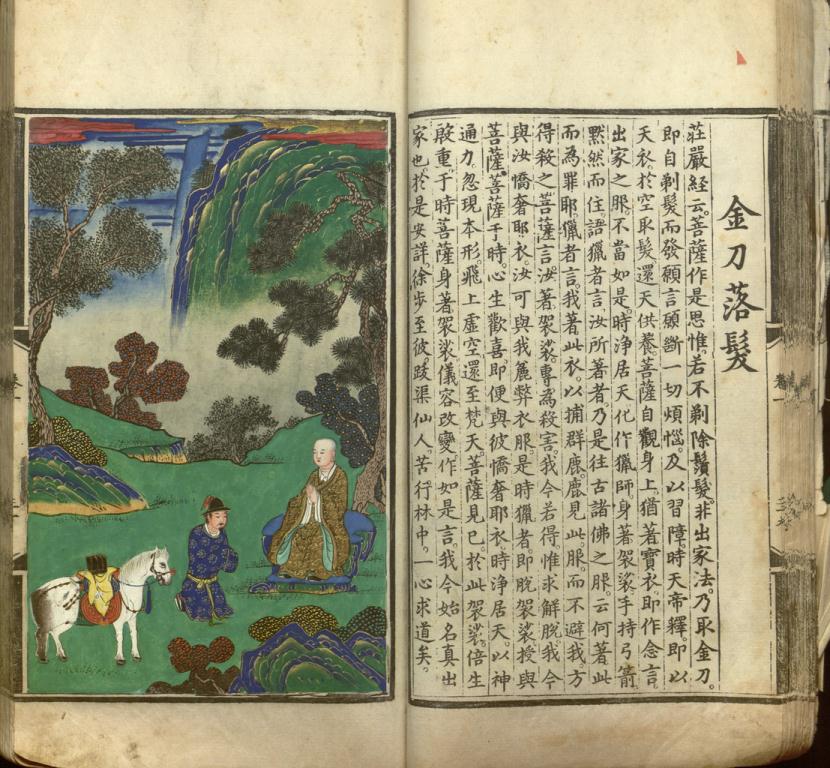 金刀落髮
莊嚴経云。菩薩作是思惟。若不剃除鬚髮。非出家法。乃取金刀。
即自剃髮而發願言。願斷一切煩惱。及以習障。時天帝釋。即以
天衣。於空取髮。還天供養。菩薩自觀身上。猶著寶衣。即作念言。
出家之服。不當如是。時淨居天化作獵師。身著袈裟。手持弓箭
黙然而住。語獵者言。汝所著者。乃是往古諸佛之服。云何著此
而為罪耶。獵者言。我著此衣。以捕群鹿。鹿見此服。而不避我。方
得殺之。菩薩言。汝著袈裟。專為殺害。我今若得。惟求解脫。我今
與汝憍奢耶衣。汝可與我麁弊衣服。是時獵者。即脫袈裟。授與
菩薩。菩薩于時。心生歡喜。即便與彼憍奢耶衣。時淨居天。以神
通力。忽現本形。飛上虛空。還至梵天。菩薩見已。於此袈裟。倍生
殷重。于時菩薩身著袈裟。儀容改變。作如是言。我今始名真出
家也。於是安詳徐步。至彼跋渠仙人。苦行林中。一心求道矣。